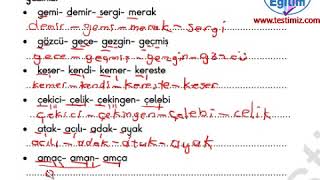 Eğitim
www.testimiz.com
• gemi- demir- sergi- merak
demir - gemi - merak - sergi
• gözcü- gece- gezgin- geçmiş
gece - geçmiş - gezgin - gözcü
• keser- kendi- kemer- kereste
kemer - kendi - kereste - keser
• çekici- çelik- çekingen- çelebi
çekici - çekingen - çelebi - çelik
• atak- acılı- adak- ayak
acılı - adak - atak - ayak
• amaç- aman- amca